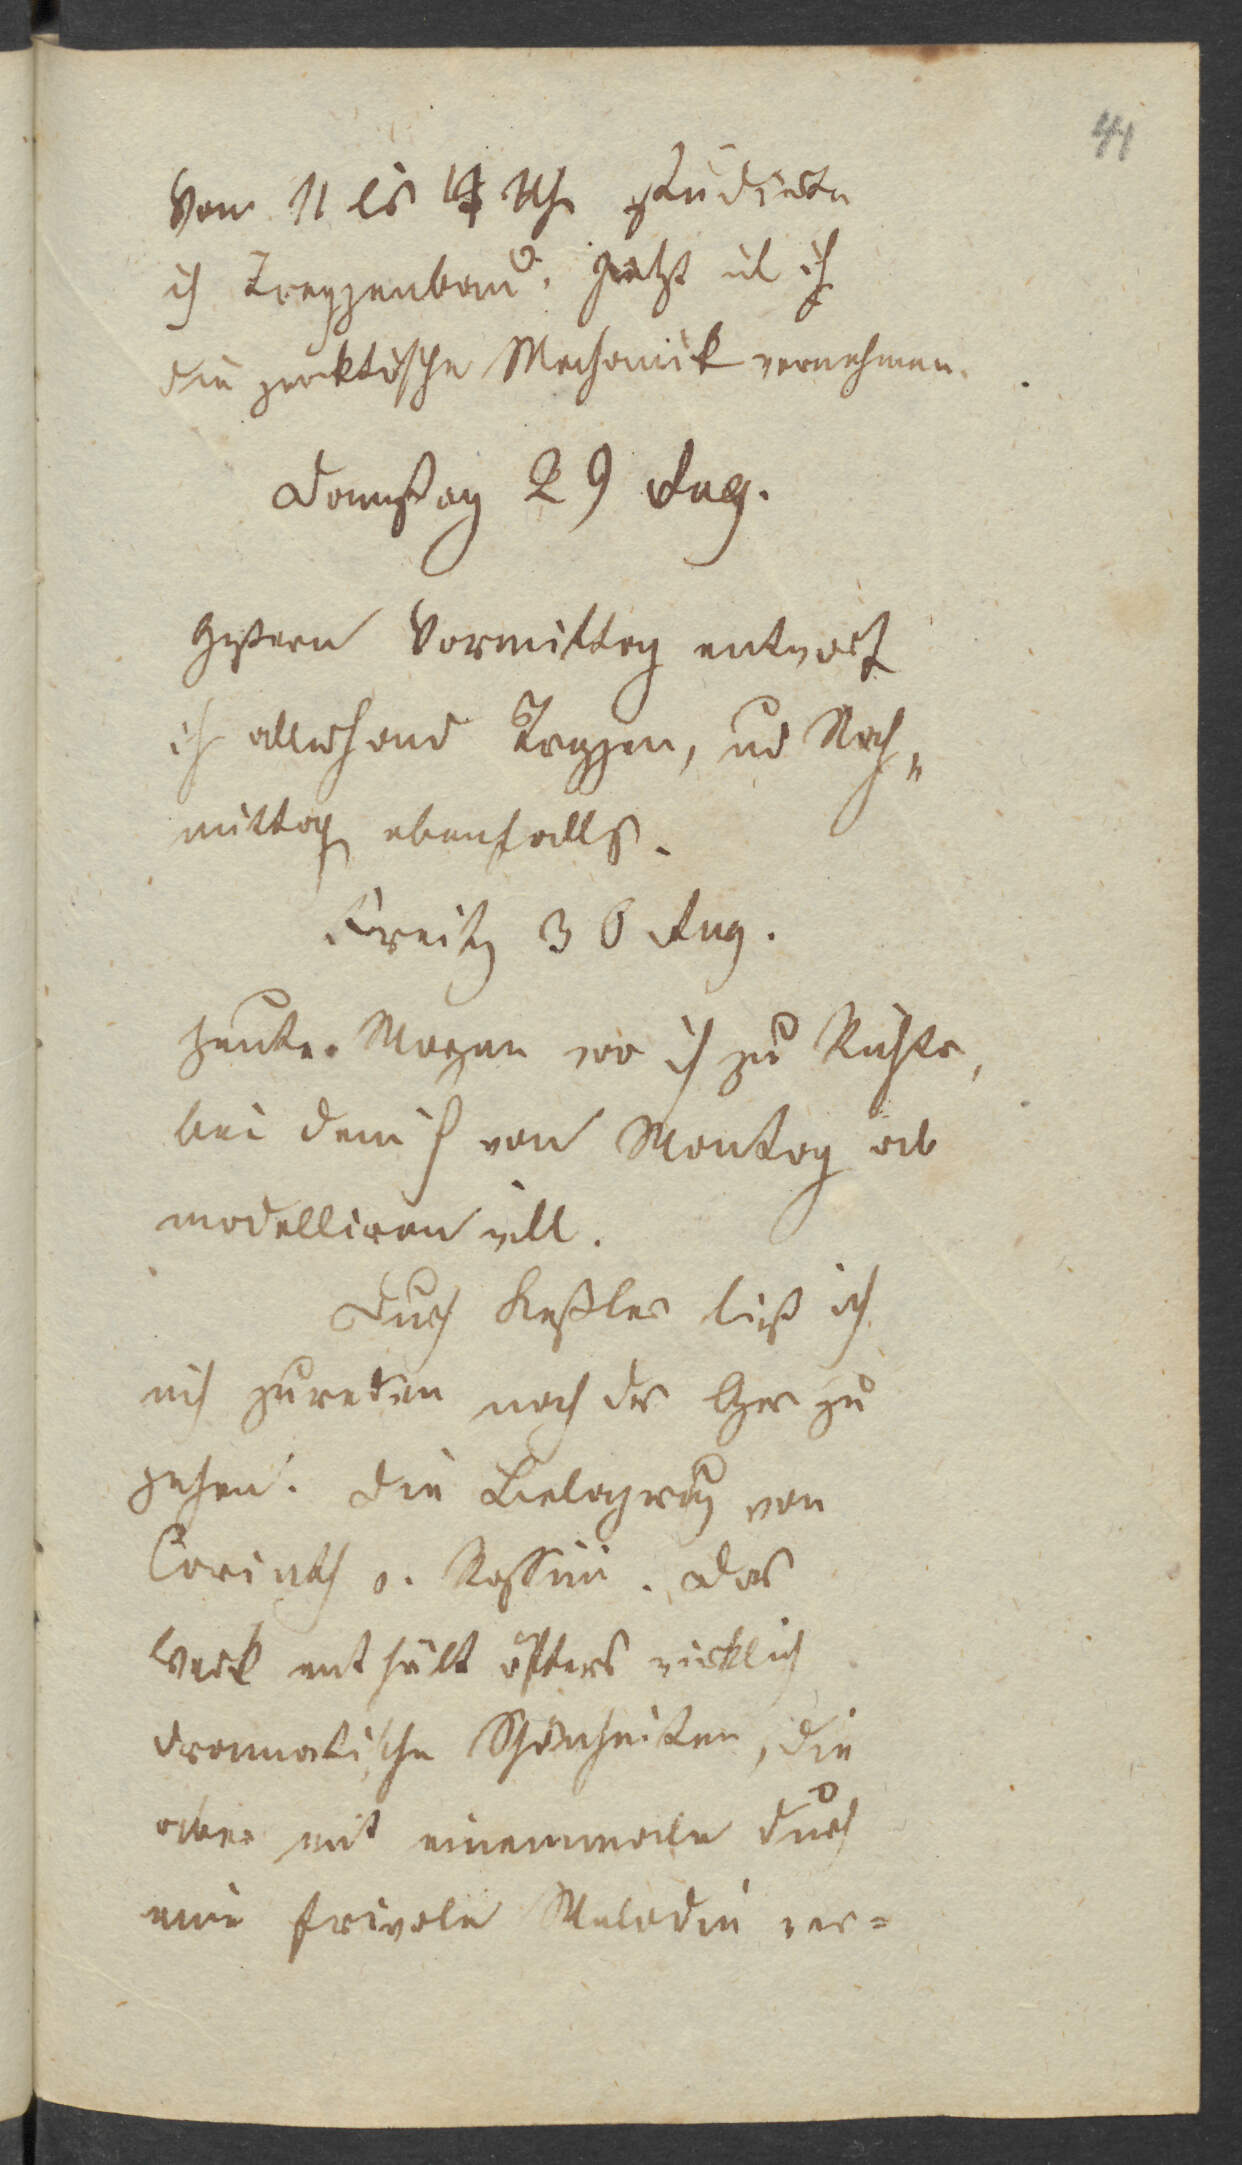 41
Von 11 bis 14 Uhr studirte
ich Treppenbau. Jetzt will ich
die praktische Mechanik vornehmen.
Donnstag 29 Aug.
Gestern Vormittag entwarf
ich allerhand Treppen, und Nach„
mittag ebenfalls.
Freitg 30 Aug.
Heute Morgen war ich zu Richter,
bei dem ich von Montag ab
modelliren will.
Durch Keßler ließ ich
mich zureden nach der Oper zu
gehen. Die Belagrung von
Corinth v. Rossini. Das
Werk enthält öfters wirklich
dramatische Schönheiten, die
aber mit einemmale durch
eine frivole Melodie ver=